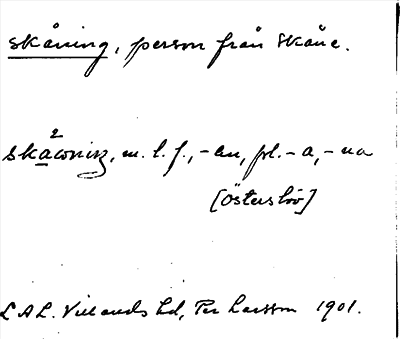 skåning, person från Skåne.
skåwniŋ, m. l. f., -en, pl. -a, -na
[Österslöv]
LAL. Villands hd, Per Larsson 1901.